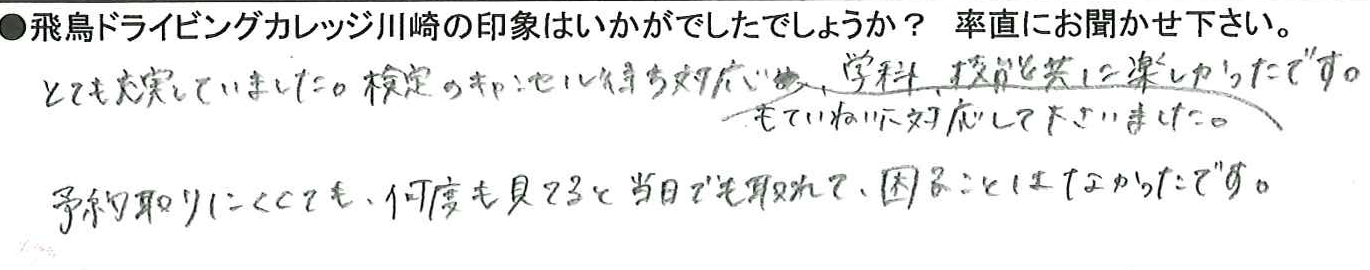 ●飛鳥ドライビングカレッジ川崎の印象はいかがでしたでしょうか？ 率直にお聞かせ下さい。
とても充実していました。検定のキャンセル待ち対応、学科、技能共に楽しかったです。
もていねいに対応して下さいました。
予約取りにくくても、何度も見てると当日でも取れて、困ることはなかったです。